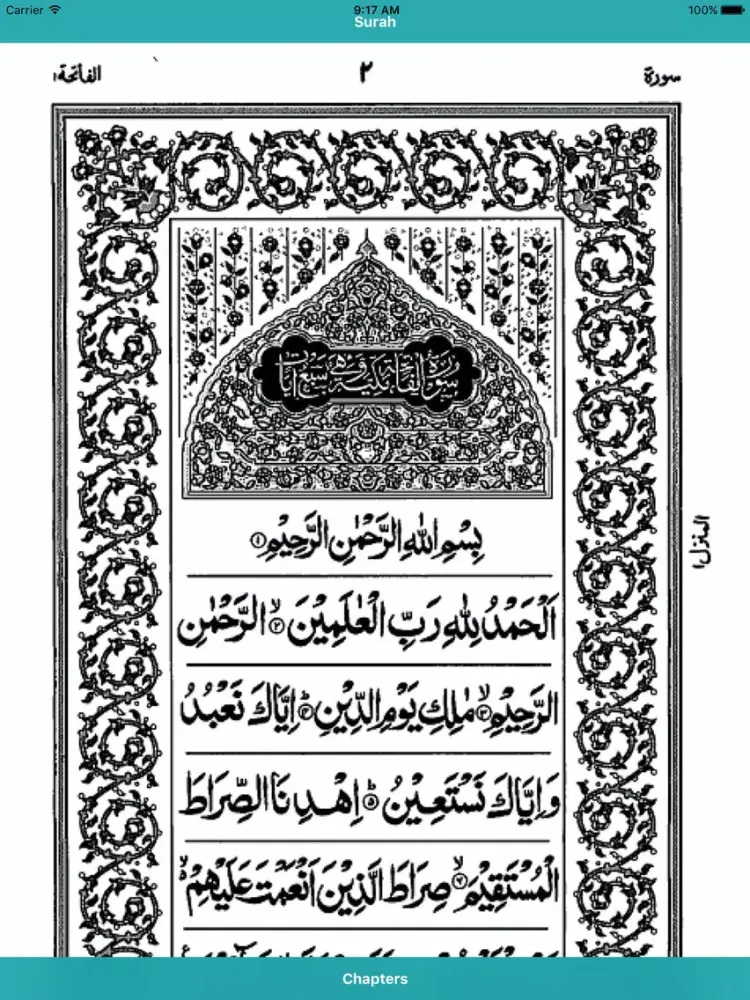 Carrier 9:17 AM 100%
Surah
سورة ٢ الفاتحة ١
سُوْرَةُ الْفَاتِحَةِ مَكِّيَّةٌ وَّهِيَ سَبْعُ اٰيَاتٍ
بِسْمِ اللهِ الرَّحْمٰنِ الرَّحِيْمِ ①
اَلْحَمْدُ لِلّٰهِ رَبِّ الْعٰلَمِيْنَ ۙ② الرَّحْمٰنِ
الرَّحِيْمِ ۙ③ مٰلِكِ يَوْمِ الدِّيْنِ ؕ④ اِيَّاكَ نَعْبُدُ
المنزل ١
وَاِيَّاكَ نَسْتَعِيْنُ ؕ⑤ اِهْدِنَا الصِّرَاطَ
الْمُسْتَقِيْمَ ۙ⑥ صِرَاطَ الَّذِيْنَ اَنْعَمْتَ عَلَيْهِمْ ۙ
Chapters